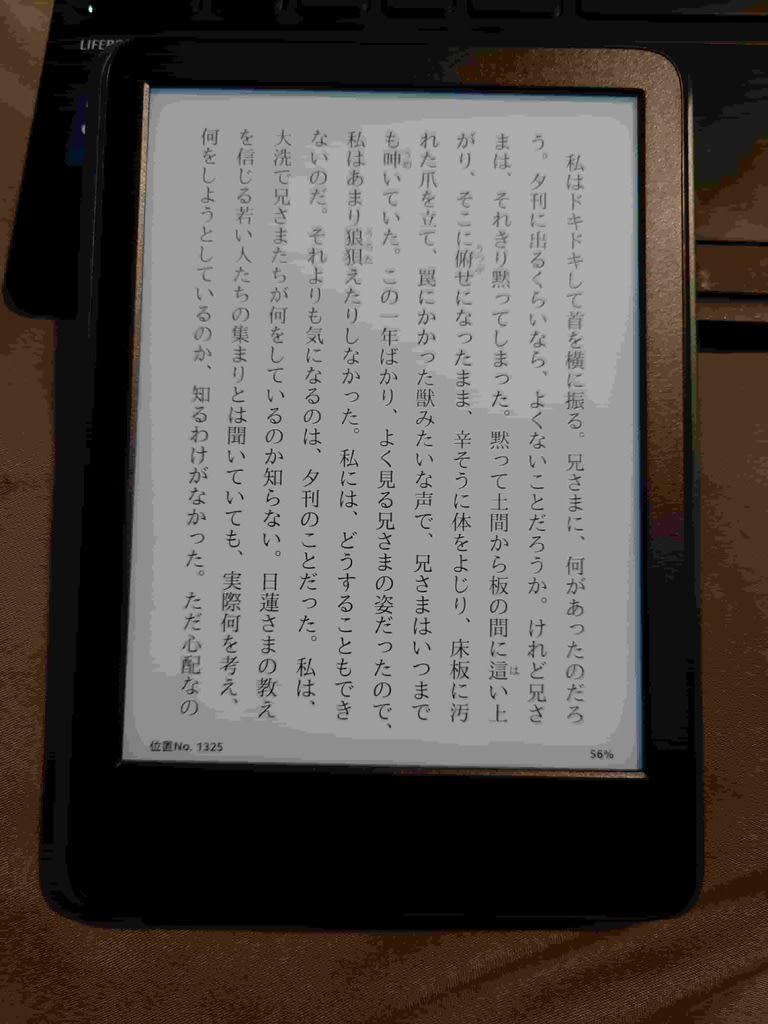 LIFEB
私はドキドキして首を横に振る。兄さまに、何があったのだろ
う。夕刊に出るくらいなら、よくないことだろうか。けれど兄さ
まは、それきり黙ってしまった。黙って土間から板の間に這い上
がり、そこに俯せになったまま、辛そうに体をよじり、床板に汚
れた爪を立て、罠にかかった獣みたいな声で、兄さまはいつまで
も呻いていた。この一年ばかり、よく見る兄さまの姿だったので、
私はあまり狼狽えたりしなかった。私には、どうすることもでき
ないのだ。それよりも気になるのは、夕刊のことだった。私は、
大洗で兄さまたちが何をしているのか知らない。日蓮さまの教え
を信じる若い人たちの集まりとは聞いていても、実際何を考え、
何をしようとしているのか、知るわけがなかった。ただ心配なの
位置No. 1325
56%